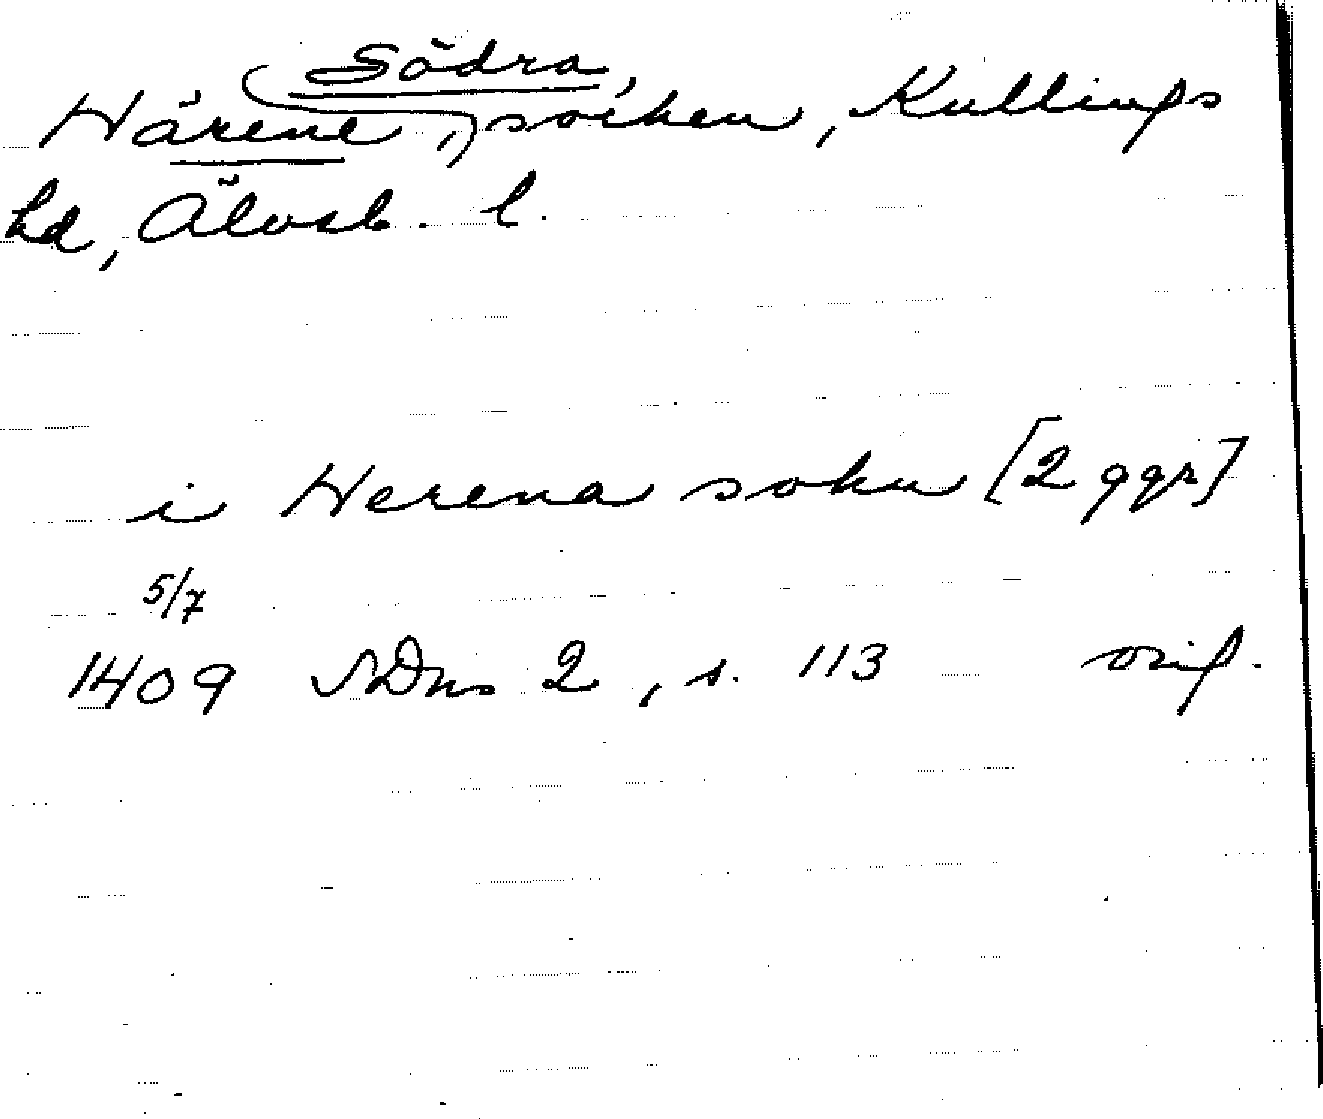 Södra,
Härene, socken, Kullings
hd, Älvsb. l.
i Herena sokn [2 ggr]
5/7
1409 SDns 2, s. 113 orig.